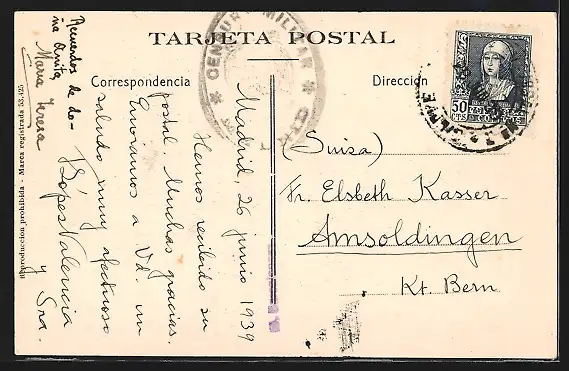 TARJETA POSTAL
Correspondencia
Dirección
CENSURA MILITAR
50
CTS
Madrid, 26 junio 1939
Hemos recibido su
postal. Muchas gracias.
Enviamos a Vd. un
saludo muy afectuoso
López Valencia
y Sra.
Recuerdos de do-
ña Anita,
María Teresa
(Suiza)
Fr. Elsbeth Kasser
Amsoldingen
Kt. Bern
Reproducción prohibida - Marca registrada 53.425